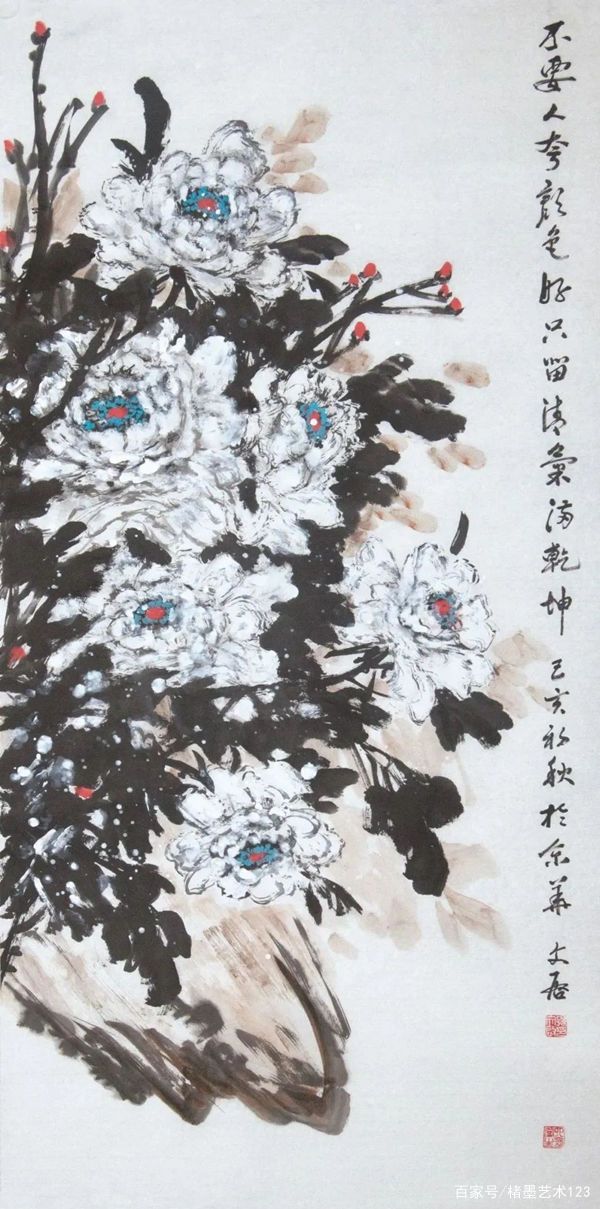 不要人夸颜色好只留清氣满乾坤 己亥初秋於京華 文
百家号/楮墨艺术123